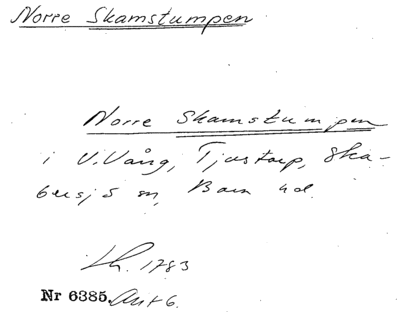 Norre Skamstumpen
Norre Skamstumpen
i V.Vång, Tjustorp, Ska-
bersjö sn, Bara hd.
Lh. 1783
Nr 6385. Akt 6.